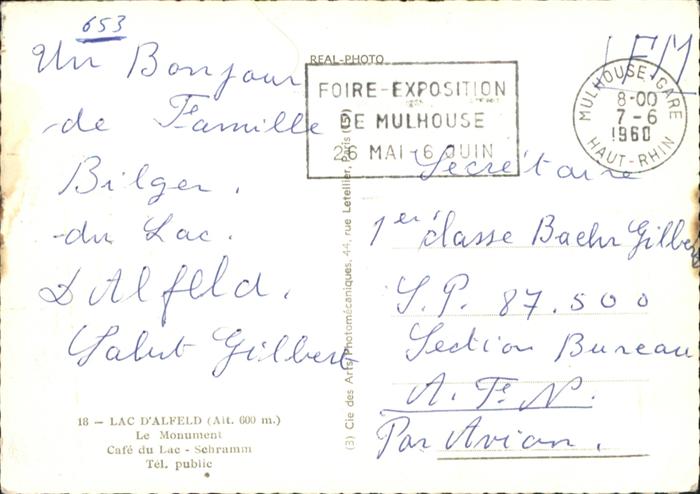 653
Un Bonjour
de Famille
Bilger.
du Lac.
D'Alfeld.
Salut Gilbert
18 — LAC D'ALFELD (Alt. 600 m.)
Le Monument
Café du Lac - Schramm
Tél. public
REAL-PHOTO
(3) Cie des Arts Photomécaniques, 44, rue Letellier, Paris
FOIRE-EXPOSITION
DE MULHOUSE
26 MAI-6 JUIN
MULHOUSE-GARE
8-00
7-6
1960
HAUT-RHIN
F.M
Secrétaire
1er classe Baehr Gilbert
S.P. 87.500
Section Bureau
A.F.N.
Par Avion.